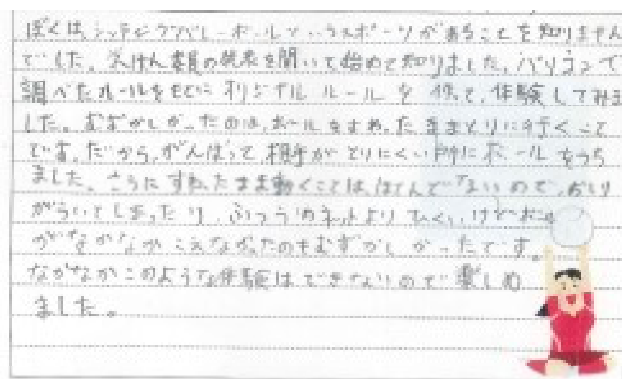 ぼくは、シッティングバレーボールというスポーツがあることを知りません
でした。実けん委員の発表を聞いて始めて知りました。パソコンで
調べたルールをもとにオリジナルルールを作って、体験してみま
した。むずかしかったのは、ボールをすわったままとりに行くこと
です。だから、がんばって、相手がとりにくい所にボールをうち
ました。さらにすわったまま動くことは、ほとんどないので、おしり
がういてしまったり、ふつうのネットよりひくいけど
がなかなかこえなかったのもむずかしかったです。
なかなかこのような体験はできないので楽しめ
ました。